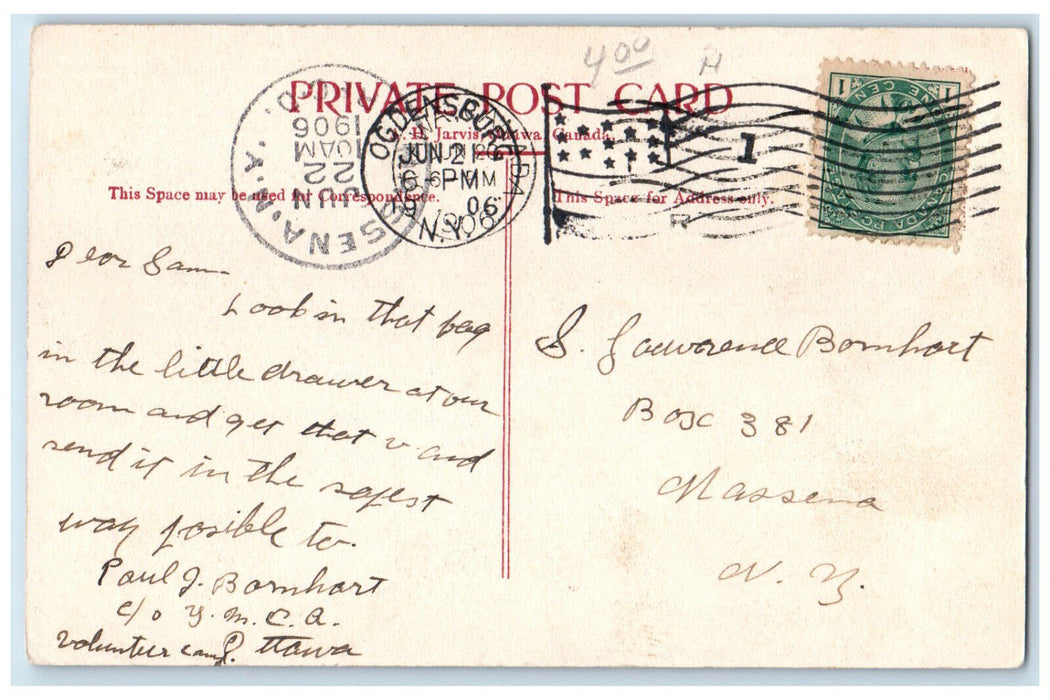 4 00
PRIVATE POST CARD
H. Jarvis, Ottawa, Canada.
This Space may be used for Correspondence.
This Space for Address only.
OGDENSBURG
JUN 21
6-PM
1906
N.Y.
MASSENA, N.Y.
JUN
22
10AM
1906
1
ONE CENT
CANADA POSTAGE
Dear Sam-
Look in that bag
in the little drawer at our
room and get that v and
send it in the safest
way posible to.
Paul J. Bornhart
c/o Y.M.C.A.
volunteer camp. Ottawa
S. Lawrence Bornhart
Box 381
Massena
N. Y.